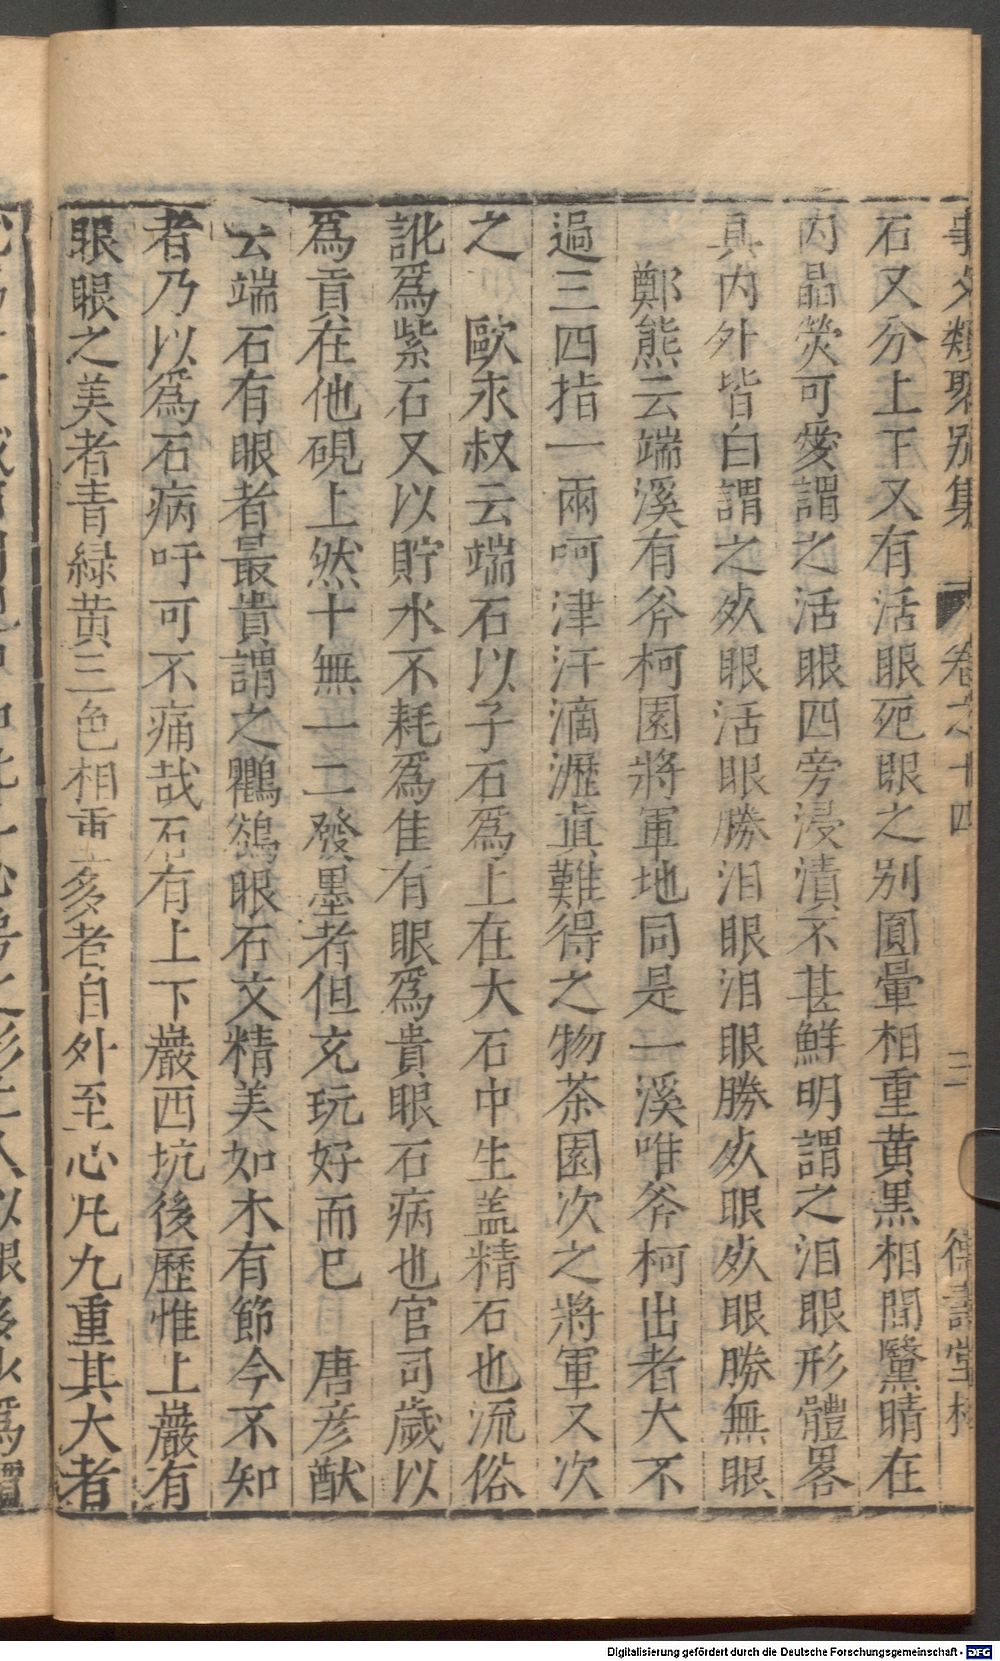 事文類聚別集 卷之十四 三 德壽堂梓
石又分上下又有活眼死眼之別圓暈相重黃黑相間黳睛在
內晶熒可愛謂之活眼四旁浸漬不甚鮮明謂之淚眼形體畧
具內外皆白謂之死眼活眼勝淚眼淚眼勝死眼死眼勝無眼
鄭熊云端溪有斧柯園將軍地同是一溪唯斧柯出者大不
過三四指一兩呵津汗滴瀝眞難得之物茶園次之將軍又次
之 歐永叔云端石以子石爲上在大石中生盖精石也流俗
訛爲紫石又以貯水不耗爲佳有眼爲貴眼石病也官司歲以
爲貢在他硯上然十無一二發墨者但充玩好而已 唐彥猷
云端石有眼者最貴謂之鸜鵒眼石文精美如木有節今不知
者乃以爲石病吁可不痛哉石有上下巖西坑後歷惟上巖有
眼眼之美者青緑黄三色相重多者自外至心凡九重其大者
Digitalisierung gefördert durch die Deutsche Forschungsgemeinschaft - DFG